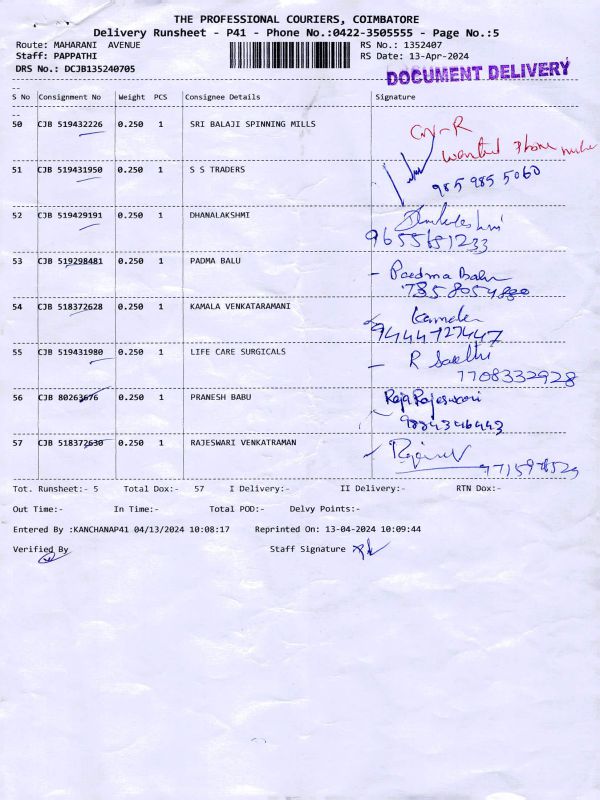 THE PROFESSIONAL COURIERS, COIMBATORE
Delivery Runsheet - P41 - Phone No.:0422-3505555 - Page No.:5
Route: MAHARANI AVENUE RS No.: 1352407
Staff: PAPPATHI RS Date: 13-Apr-2024
DRS No.: DCJB135240705
DOCUMENT DELIVERY
S No Consignment No Weight PCS Consignee Details Signature
50 CJB 519432226 0.250 1 SRI BALAJI SPINNING MILLS
wanted Phone
51 CJB 519431950 0.250 1 S S TRADERS
985 985 5060
52 CJB 519429191 0.250 1 DHANALAKSHMI
9655651233
53 CJB 519298481 0.250 1 PADMA BALU
- Padma Balu
54 CJB 518372628 0.250 1 KAMALA VENKATARAMANI
Kamala
9444727447
55 CJB 519431980 0.250 1 LIFE CARE SURGICALS
- R Sakthi
7708332928
56 CJB 80263676 0.250 1 PRANESH BABU
Raja Rajeswari
9884346443
57 CJB 518372630 0.250 1 RAJESWARI VENKATRAMAN
Tot. Runsheet:- 5 Total Dox:- 57 I Delivery:- II Delivery:- RTN Dox:-
Out Time:- In Time:- Total POD:- Delvy Points:-
Entered By :KANCHANAP41 04/13/2024 10:08:17 Reprinted On: 13-04-2024 10:09:44
Verified By Staff Signature